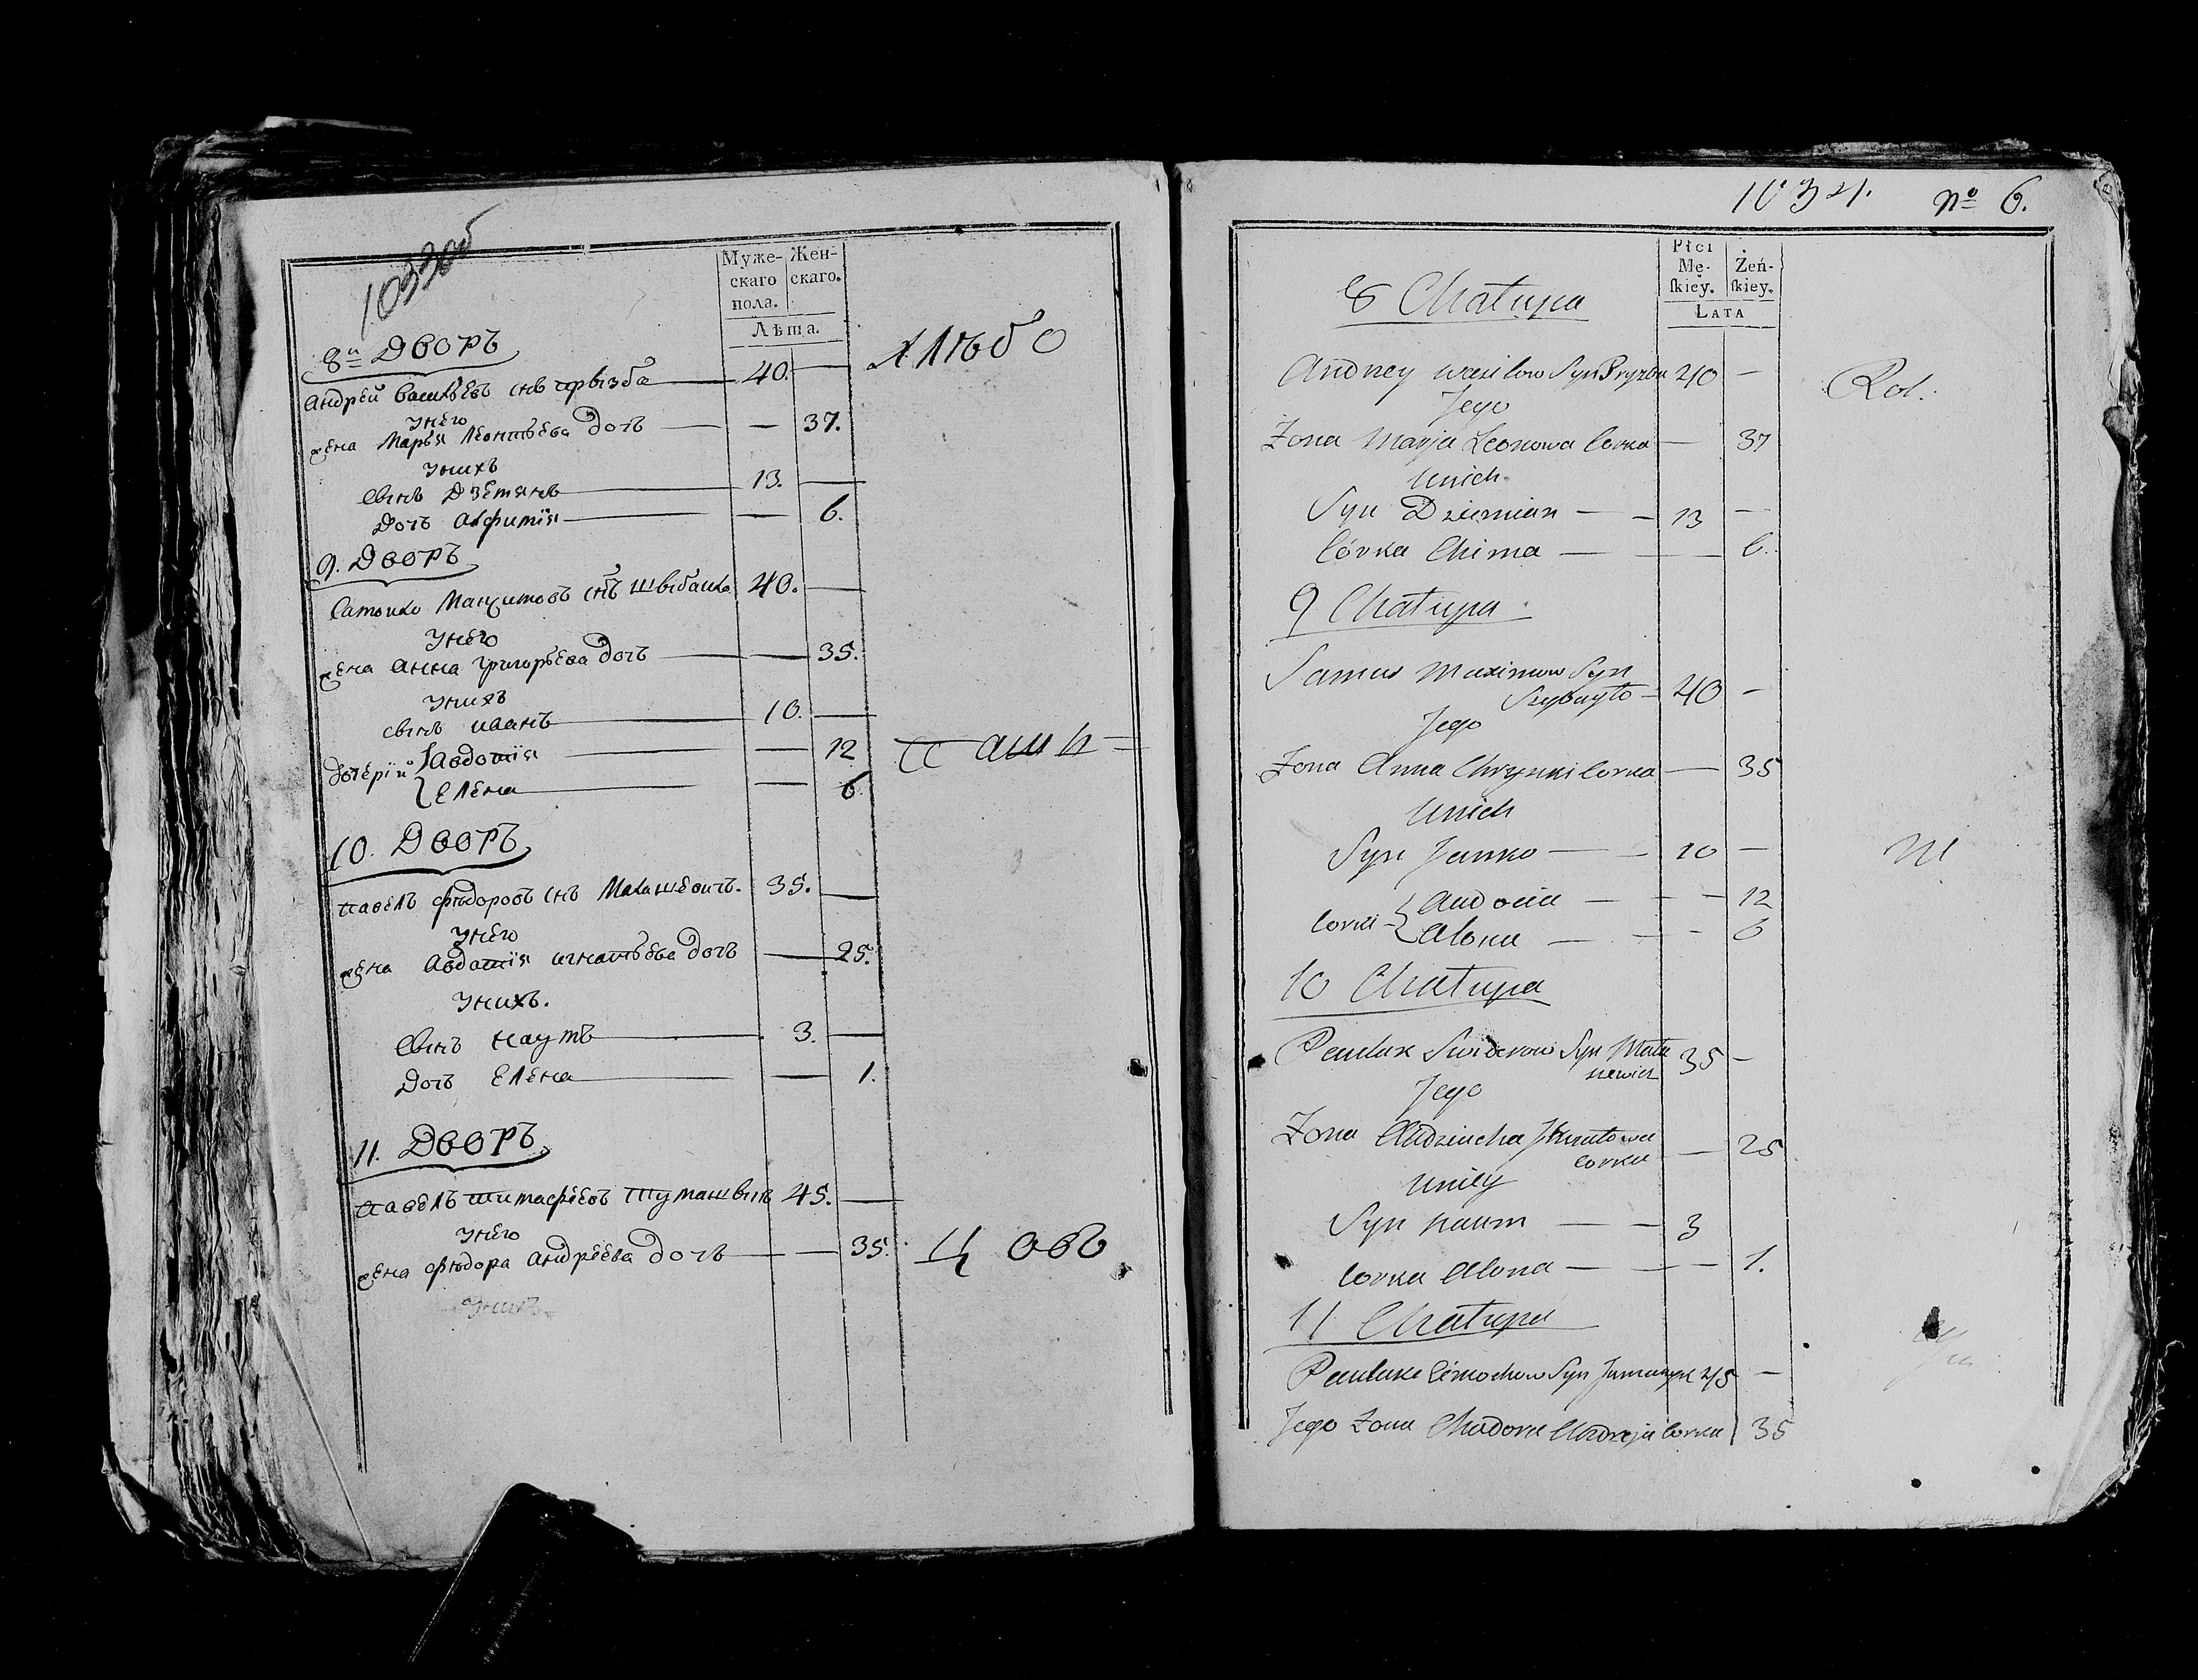 1033об
Муже-
скаго
пола.
Жен-
скаго.
Лѣта.
8й ДВОРЪ
Андрей Васильевъ снъ прызба 40. —
Унего
жена Марья Леонтьева Дочь — 37.
Унихъ
сынъ Дзёмянъ 13. —
Дочь Афимія — 6.
хлѣбо
9. ДВОРЪ
Самойло Максимовъ снъ Шыбайло 40. —
Унего
жена Анна Григорьева Дочь — 35.
Унихъ
сынъ Иванъ 10. —
дочерїи Авдотия — 12
Елена — 6.
паши=
10. ДВОРЪ
Павелъ Фѣдоровъ снъ Маташевичъ. 35. —
Унего
жена Авдотия Игнатьева Дочь — 25.
Унихъ.
Сынъ Наумъ 3. —
Дочь Елена — 1.
11. ДВОРЪ
Павелъ Тимофѣевъ 45. —
Унего
жена Фѣдора Андрѣева Дочь — 35.
цовъ
1034. No 6.
Płci
Mę-
skiey.
Żeń-
skiey.
LATA
8 Chałupa
Andrey Wasilow Syn Pryzba 40 —
Jego
Zona Marja Leonowa Corka — 37
Unich
Syn Dziemian — 13 —
Córka Chima — 6.
Rol.
9 Chałupa
Samus Maximow Syn
Szybayło — 40 —
Jego
Zona Anna Chryszki Corka — 35
Unich
Syn Janko — 10 —
Corki Audocia — 12
Alona — 6
ni
10 Chałupa
Pauluk Swiderow Syn Mata
szewicz 35 —
Jego
Zona Audziucha Jhnatowa
corka — 25
Unich
Syn Naum — 3
Corka Alona — 1.
11 Chałupa
Pauluk Cimochow Syn 45 —
Jego Zona Chadora Andreja Corka 35